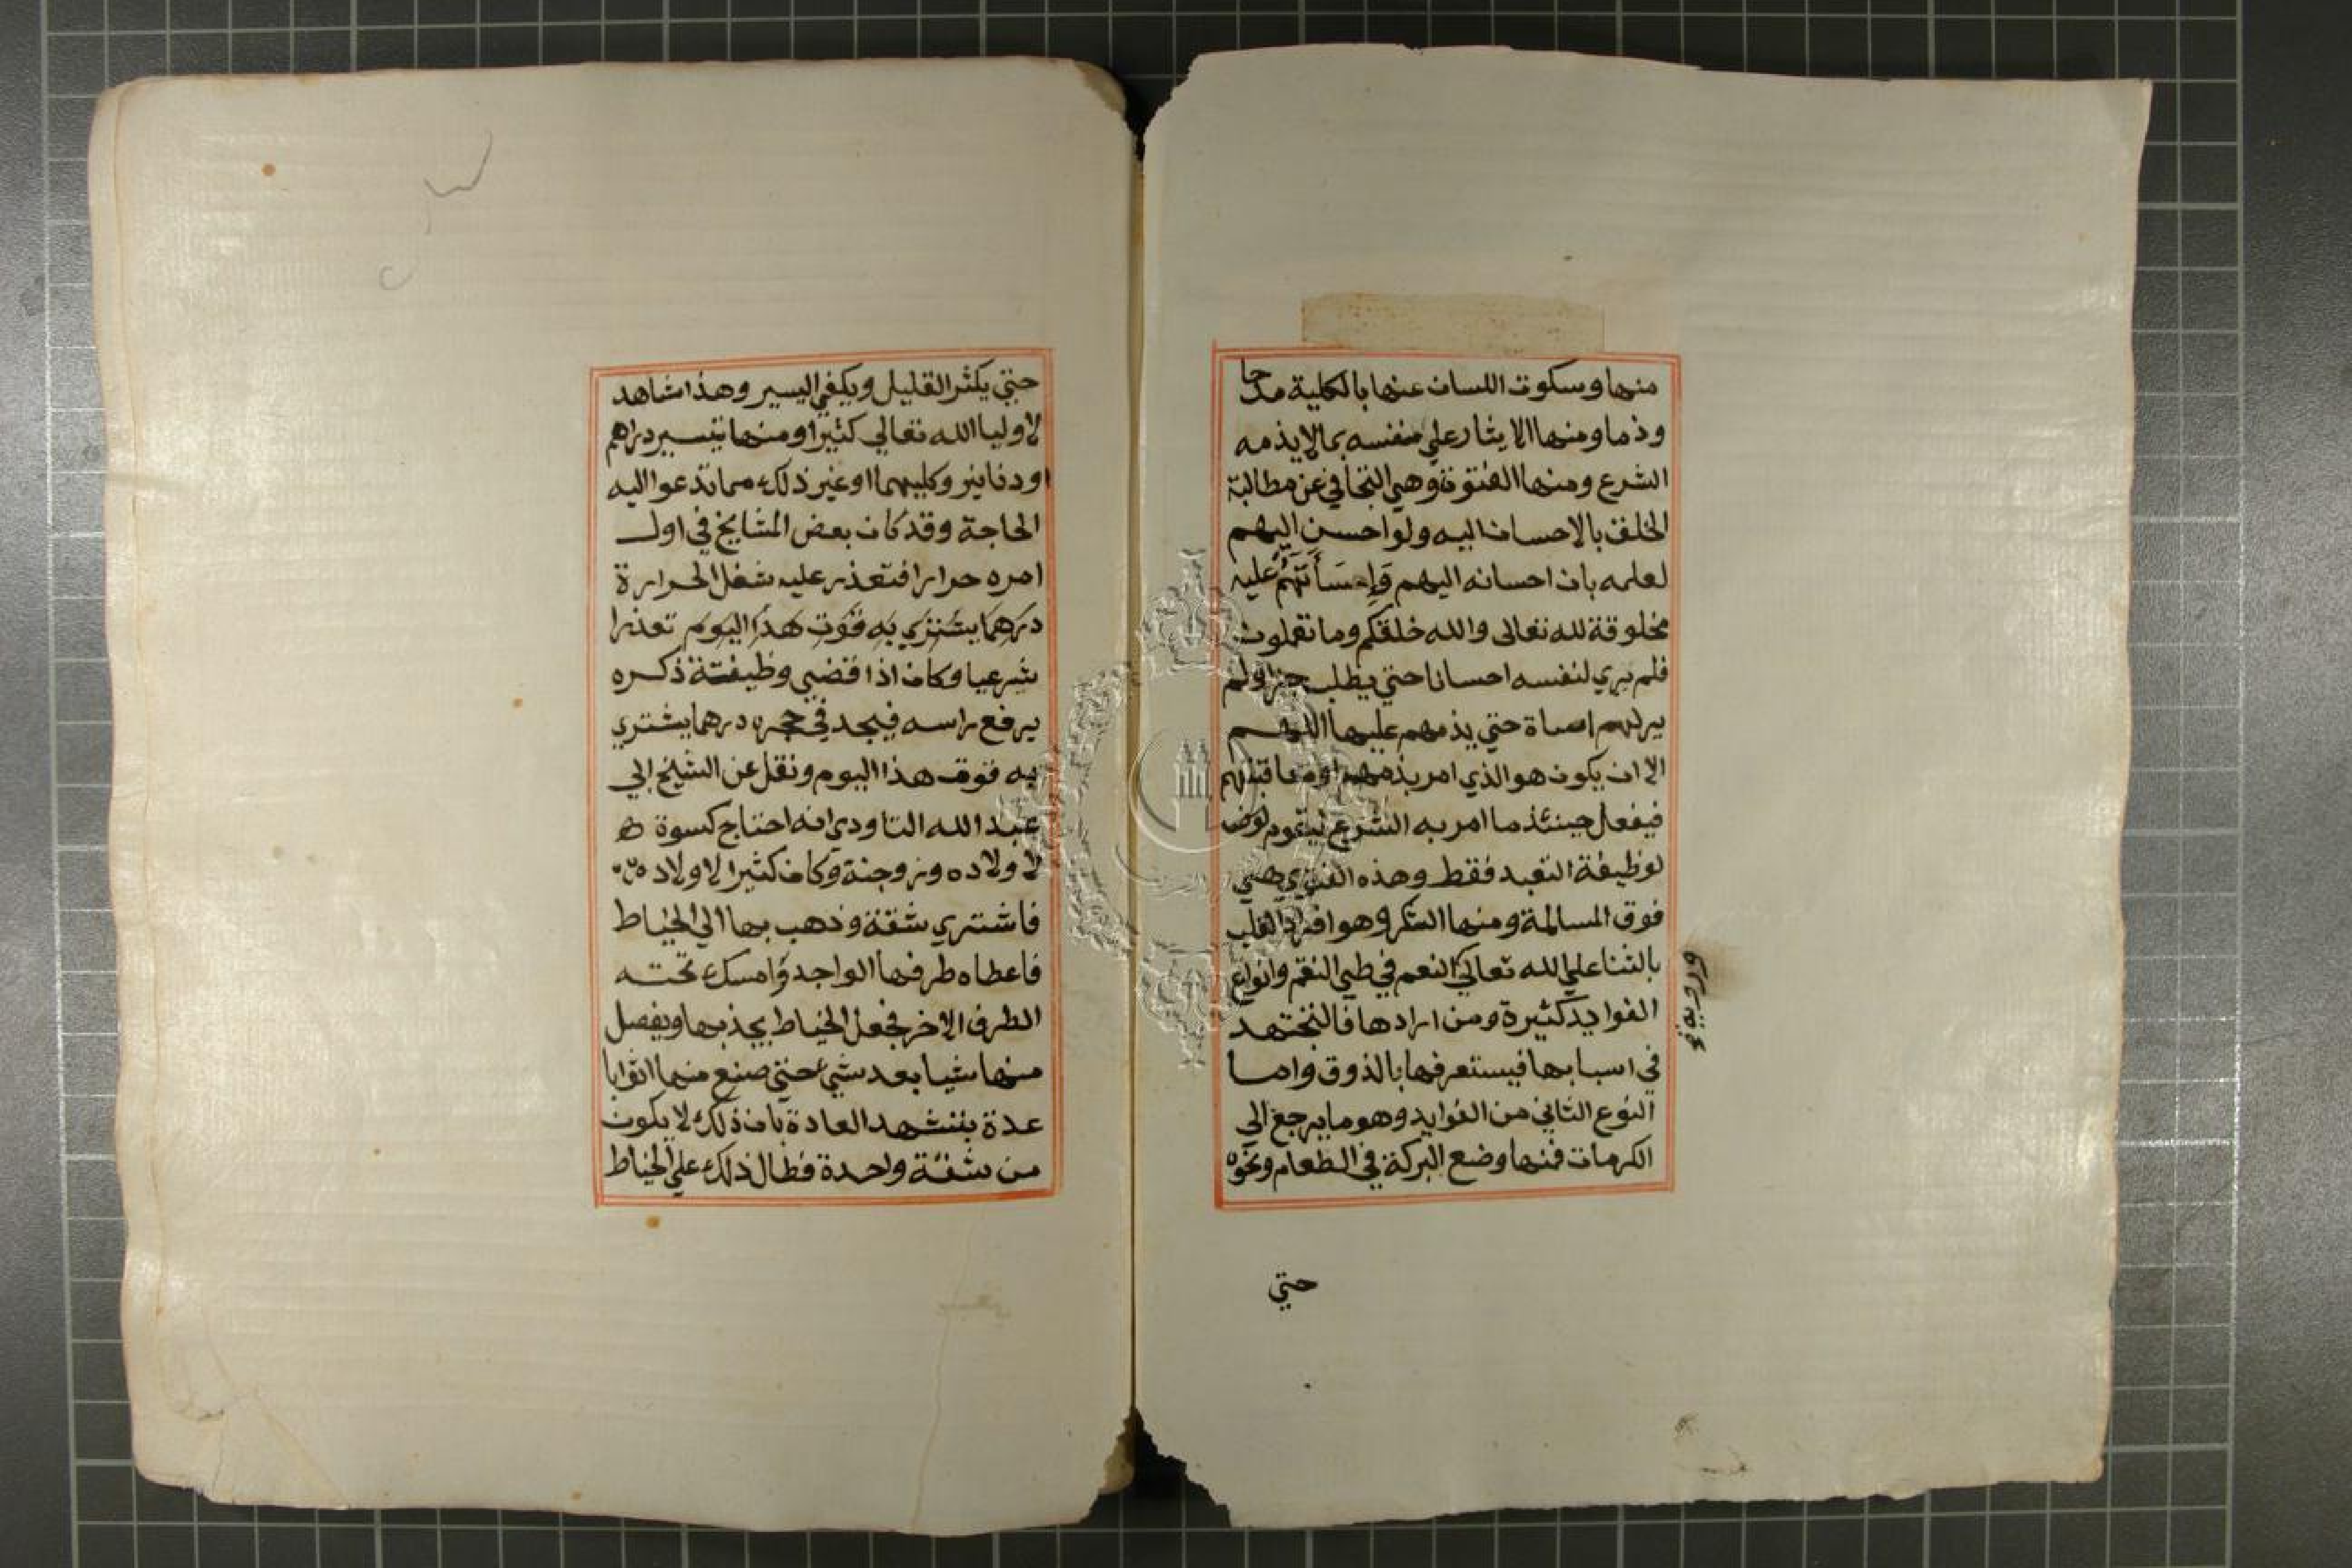 منها وسكوت اللسان عنها بالكلية مدحا
وذما ومنها الايثار علي نفسه بما لا يذمه
الشرع ومنها الفتوة وهي التجافي عن مطالبة
الخلق بالاحسان اليه ولو احسن اليهم
لعلمه بان احسانه اليهم وَإِسَأَتَهُمْ عليه
مخلوقة لله تعالى والله خلقكم وما تعملون
فلم يري لنفسه احسانا حتي يطلب جزا ولم
ير لهم اساة حتي يذمهم عليها اللهم
الا ان يكون هو الذي امر بذمهم او معاقبتهم
فيفعل حينئذ ما امر به الشرع ليقوم
لوظيفة التعبد فقط وهذه الفتوي هي
فوق المسالمة ومنها الشكر وهو افراد القلب
بالثنا علي الله تعالي النعم في طي النقم وانواع
ورؤية
الفوايد كثيرة ومن ارادها فالنجتهد
في اسبابها فيستعرفها بالذوق واما
النوع الثاني من الفوايد وهو ما يرجع الي
الكرمات فمنها وضع البركة في الطعام ونحوه
حتي
حتي يكثر القليل ويكفي اليسير وهذا شاهد
لاوليا الله تعالي كثيرا ومنها تيسير دراهم
او دنانير وكليهما او غير ذلك مما تدعوا اليه
الحاجة وقد كان بعض المشايخ في اول
امره حرارا فتعذر عليه شغل الحرارة
درهما يشتري به قوت هذا اليوم تعذرا
شرعيا وكان اذا قضي وظيفة ذكره
يرفع راسه فيجد في حجره درهما يشتري
به قوت هذا اليوم ونقل عن الشيخ ابي
عبد الله التاودي انه احتاج كسوة
لاولاده وزوجته وكان كثير الاولاد
فاشتري شقة وذهب بها الي الخياط
فاعطاه طرفها الواحد وامسك تحته
الطرف الاخر فجعل الخياط يجذبها ويفصل
منها شيا بعد شيء حتي صنع منها اثوابا
عدة بنشهد العادة بان ذلك لا يكون
من شقة واحدة فطال ذلك علي الخياط